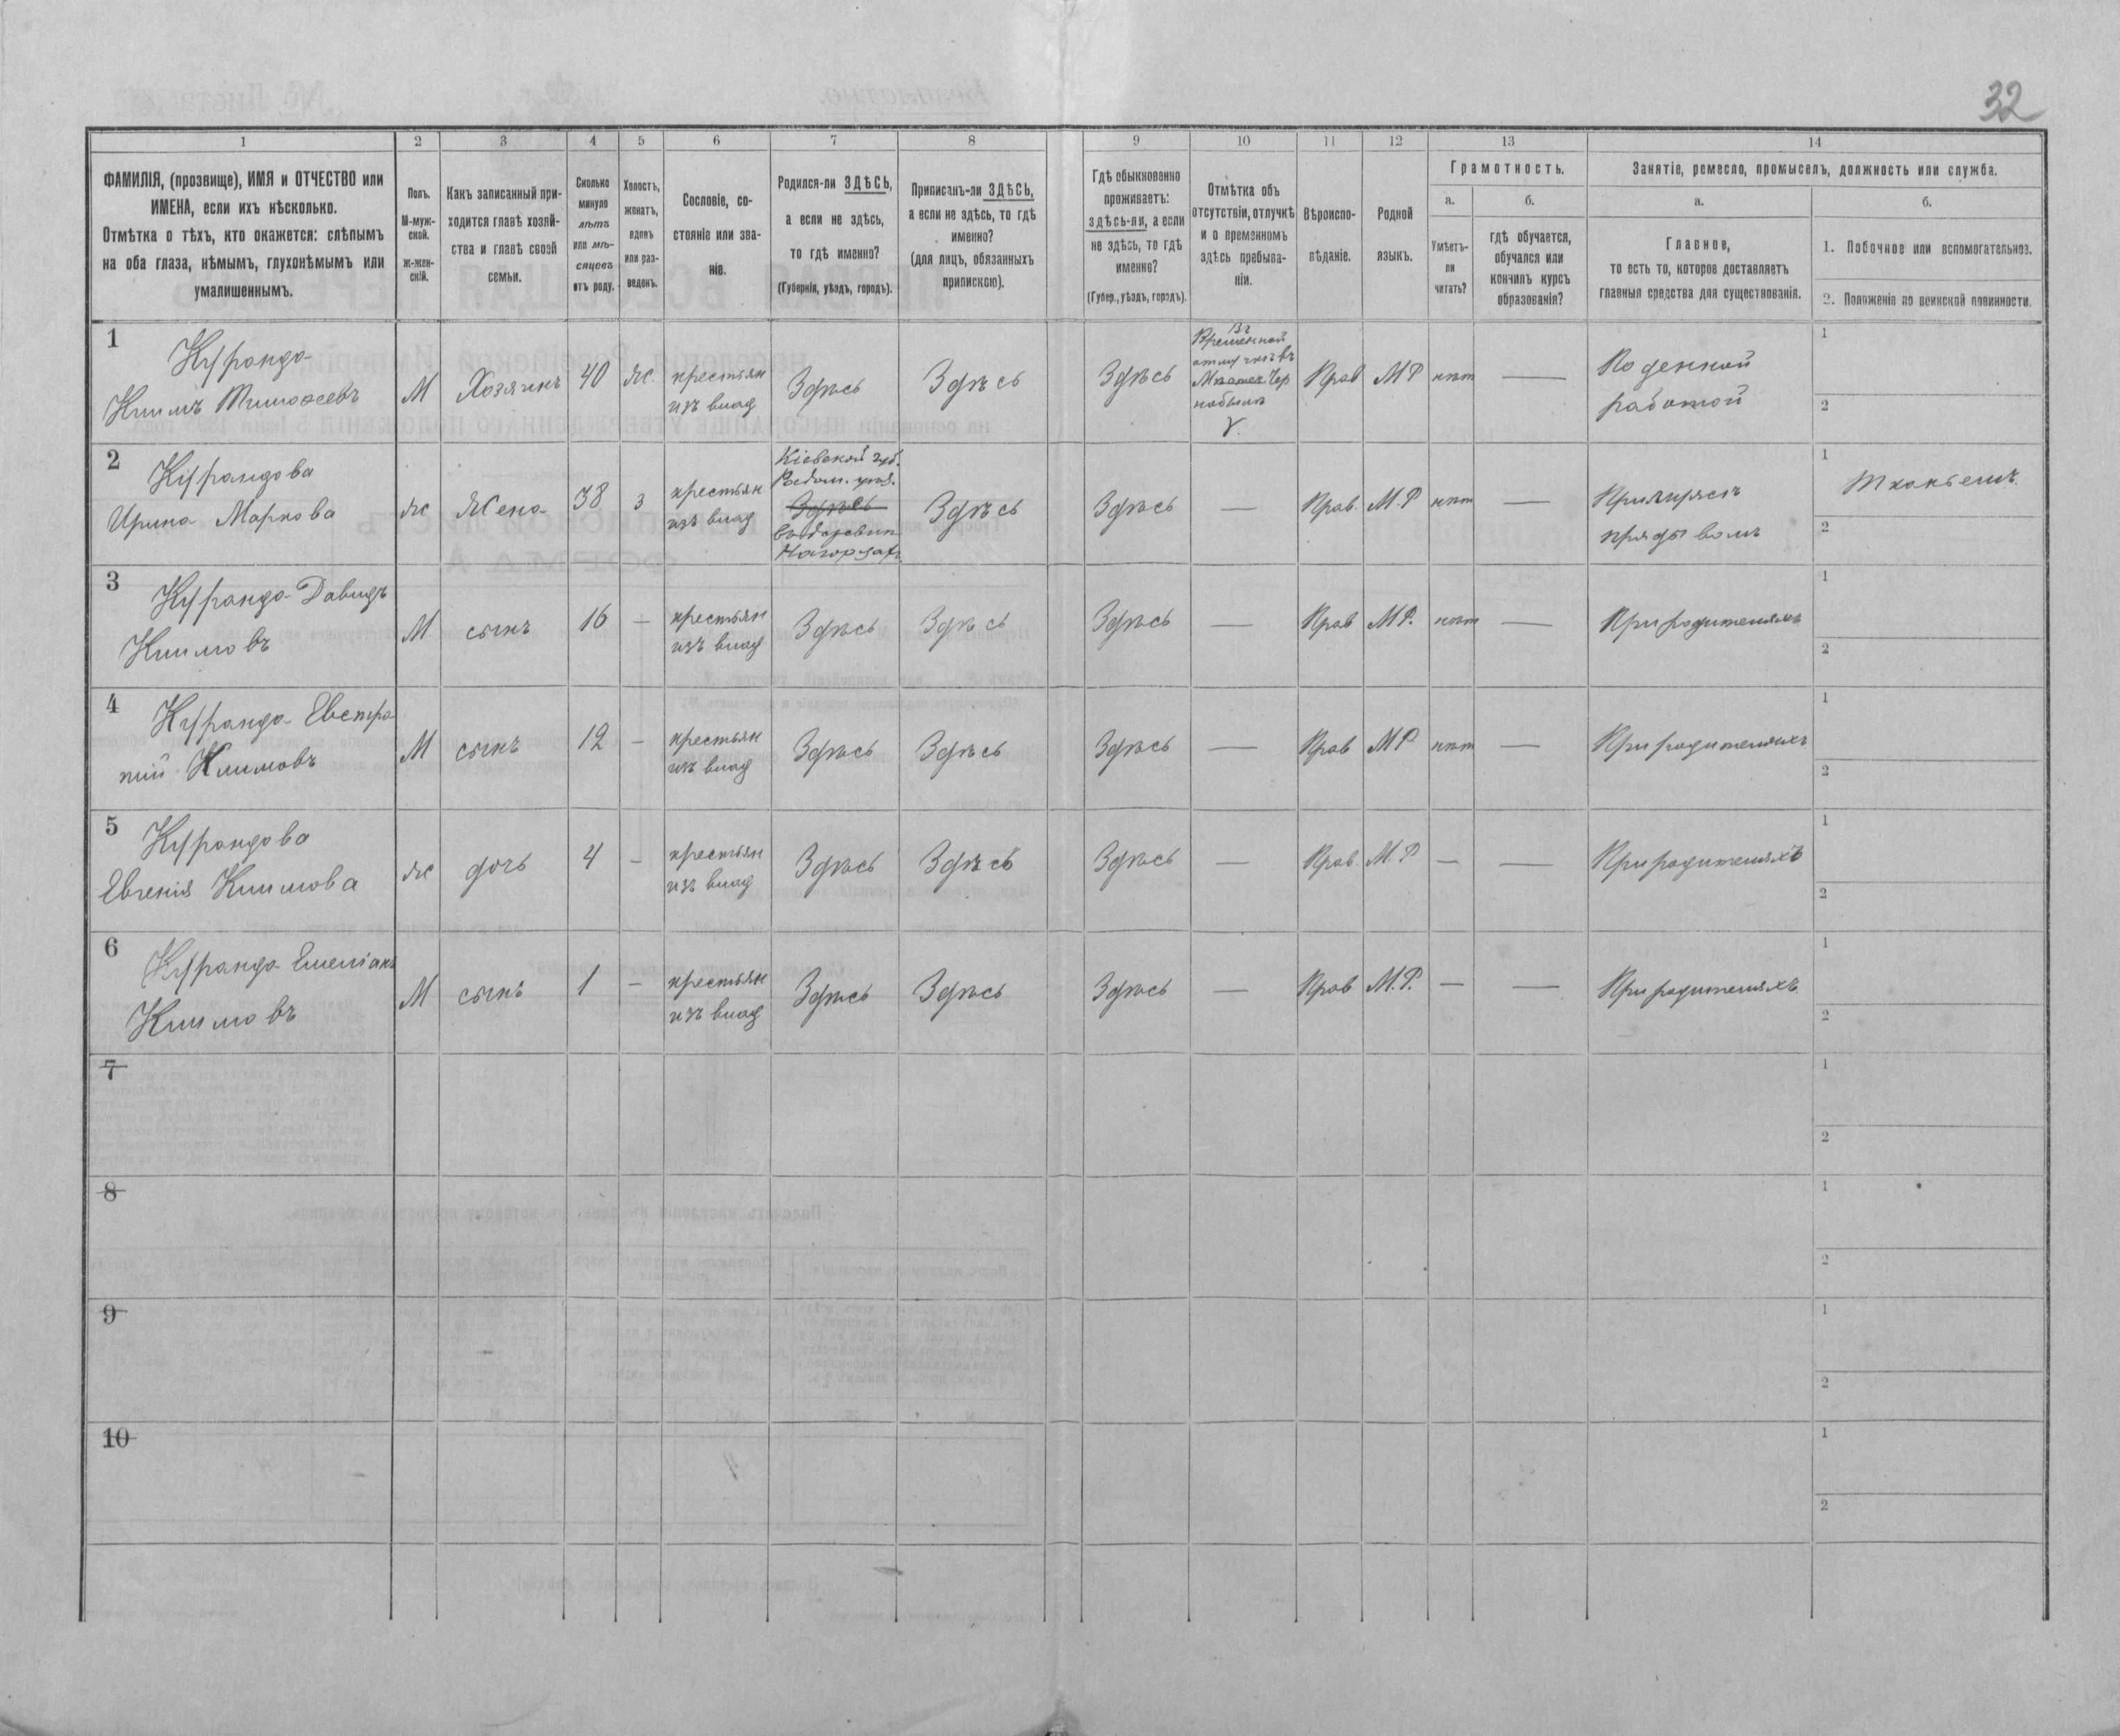 32
1 2 3 4 5 6 7 8 9 10 11 12 13 14
ФАМИЛІЯ, (прозвище), ИМЯ и ОТЧЕСТВО или
ИМЕНА, если ихъ нѣсколько.
Отмѣтка о тѣхъ, кто окажется: слѣпымъ
на оба глаза, нѣмымъ, глухонѣмымъ или
умалишеннымъ.
Полъ.
М-муж-
ской.
ж-жен-
скій.
Какъ записанный при-
ходится главѣ хозяй-
ства и главѣ своей
семьи.
Сколько
минуло
лѣтъ
или мѣ-
сяцевъ
отъ роду.
Холостъ,
женатъ,
вдовъ
или раз-
веденъ.
Сословіе, со-
стояніе или зва-
ніе.
Родился-ли ЗДѢСЬ,
а если не здѣсь,
то гдѣ именно?
(Губернія, уѣздъ, городъ).
Приписанъ-ли ЗДѢСЬ,
а если не здѣсь, то гдѣ
именно?
(для лицъ, обязанныхъ
припискою).
Гдѣ обыкновенно
проживаетъ:
здѣсь-ли, а если
не здѣсь, то гдѣ
именно?
(Губер., уѣздъ, городъ).
Отмѣтка объ
отсутствіи, отлучкѣ
и о временномъ
здѣсь пребыва-
ніи.
Вѣроиспо-
вѣданіе.
Родной
языкъ.
Грамотность.
а.
Умѣетъ-
ли
читать?
б.
гдѣ обучается,
обучался или
кончилъ курсъ
образованія?
Занятіе, ремесло, промыселъ, должность или служба.
а.
Главное,
то есть то, которое доставляетъ
главныя средства для существованія.
б.
1. Побочное или вспомогательное.
2. Положеніе по воинской повинности.
1
Куранда
Климъ Тимофеевъ
М
Хозяинъ
40
Ж.
крестьян
изъ влад
Здѣсь
Здѣсь
Здѣсь
Въ
Временной
отлучкѣ въ
Мѣстеч. Чер
нобыль
V.
Прав
М Р
нѣт
—
Поденной
работой
1
2
2
Курандова
Ирина Маркова
ж
Жена
38
З
крестьян
изъ влад
Кіевской губ.
Радом. уѣзд.
Здѣсь
въ деревни
Здѣсь
Здѣсь
—
Прав.
М. Р
нѣт
—
прядывомъ
1
Тканьемъ
2
3
Куранда Давидъ
Климовъ
М
сынъ
16
—
крестьян
изъ влад
Здѣсь
Здѣсь
Здѣсь
—
Прав
М Р.
нѣт
—
При родителяхъ
1
2
4
Куранда Евстра
тий Климовъ
М
сынъ
12
—
крестьян
изъ влад
Здѣсь
Здѣсь
Здѣсь
—
Прав
М Р
нѣт
—
При родителяхъ
1
2
5
Курандова
Евгенія Климова
ж
дочь
4
—
крестьян
изъ влад
Здѣсь
Здѣсь
Здѣсь
—
Прав.
М. Р
—
—
При родителяхъ
1
2
6
Куранда Емеліанъ
Климовъ
М
сынъ
1
—
крестьян
изъ влад
Здѣсь
Здѣсь
Здѣсь
—
Прав
М. Р.
—
—
При родителяхъ
1
2
7
1
2
8
1
2
9
1
2
10
1
2